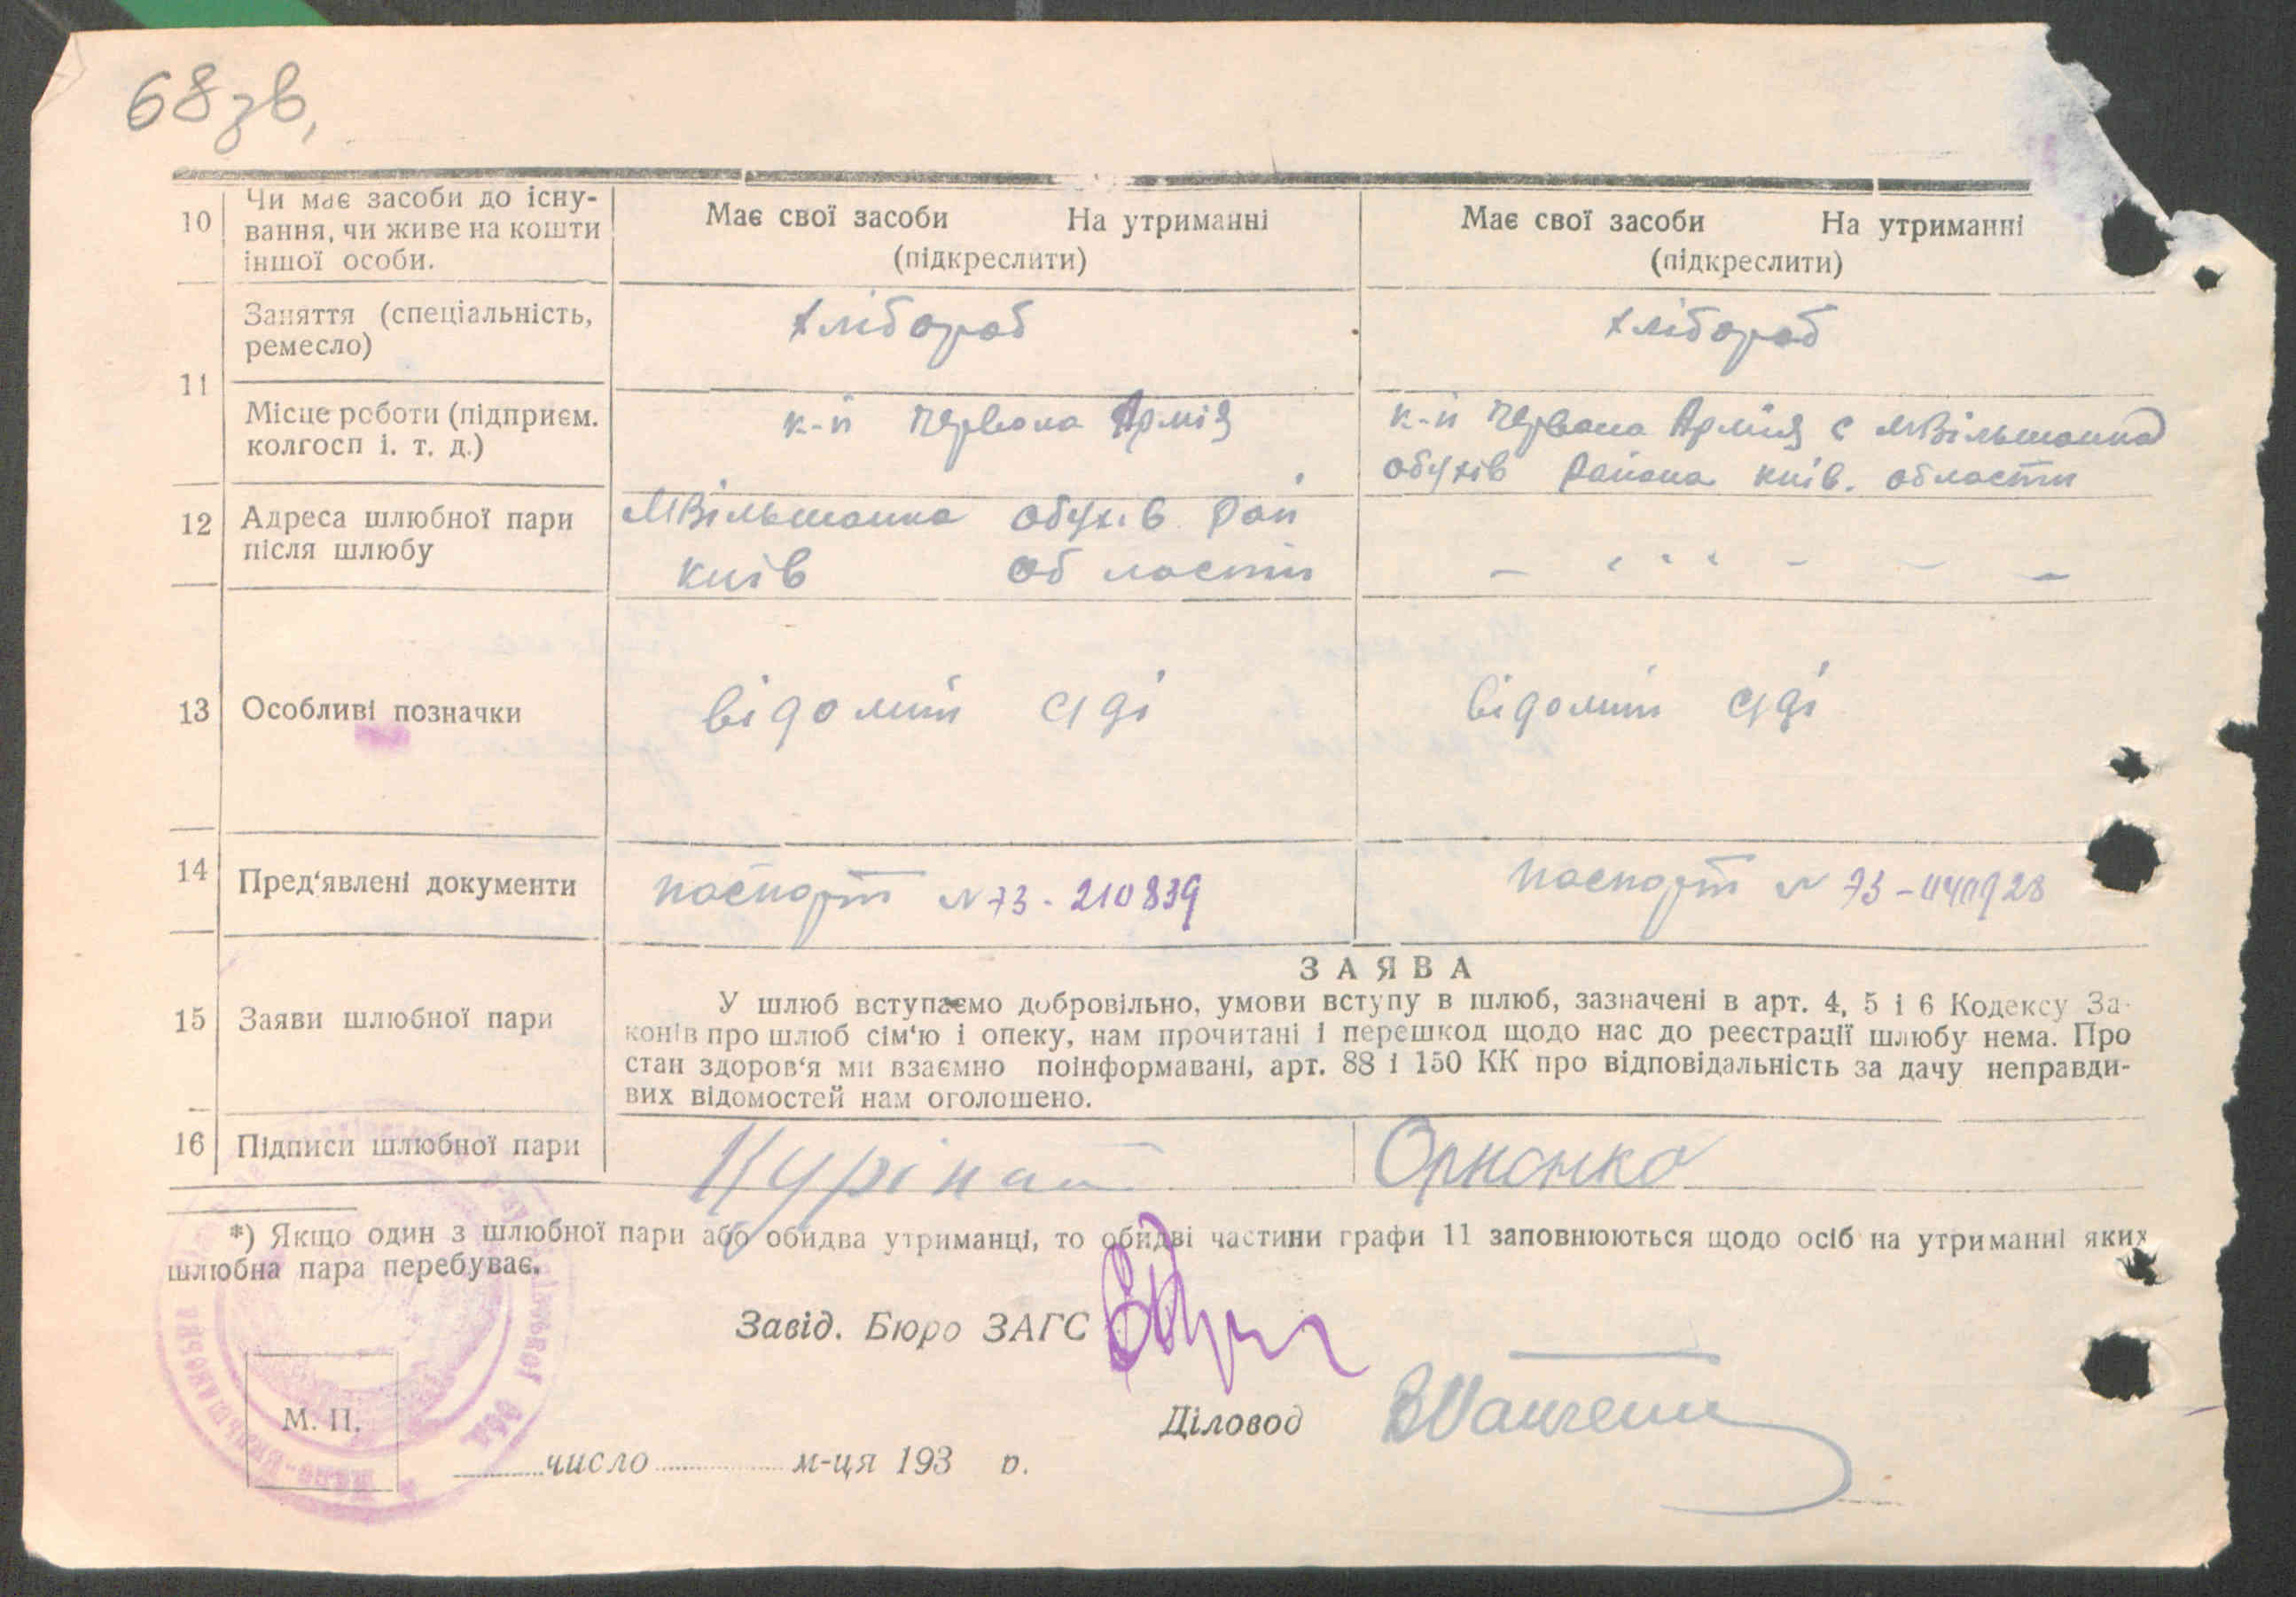 68зв,
10 Чи має засоби до існу-
вання, чи живе на кошти
іншої особи.
Має свої засоби На утриманні
(підкреслити)
Має свої засоби На утриманні
(підкреслити)
11 Заняття (спеціальність,
ремесло)
хлібороб
хлібороб
Місце роботи (підприєм.
колгосп і. т. д.)
к-п червона Армія
к-п червона Армия с МВільшанка
обухів района київ. области
12 Адреса шлюбної пари
після шлюбу
МВільшанка обухів рай
київ области
13 Особливі позначки
відомий суді
відомий суді
14 Пред'явлені документи
паспорт N 73-210839
паспорт N 73-
15 Заяви шлюбної пари
ЗАЯВА
У шлюб вступаємо добровільно, умови вступу в шлюб, зазначені в арт. 4, 5 і 6 Кодексу За-
конів про шлюб сім'ю і опеку, нам прочитані і перешкод щодо нас до реєстрації шлюбу нема. Про
стан здоров'я ми взаємно поінформавані, арт. 88 і 150 КК про відповідальність за дачу неправди-
вих відомостей нам оголошено.
16 Підписи шлюбної пари
*) Якщо один з шлюбної пари або обидва утриманці, то обидві частини графи 11 заповнюються щодо осіб на утриманні яких
шлюбна пара перебуває.
Завід. Бюро ЗАГС
Діловод
М. П.
число м-ця 193 р.